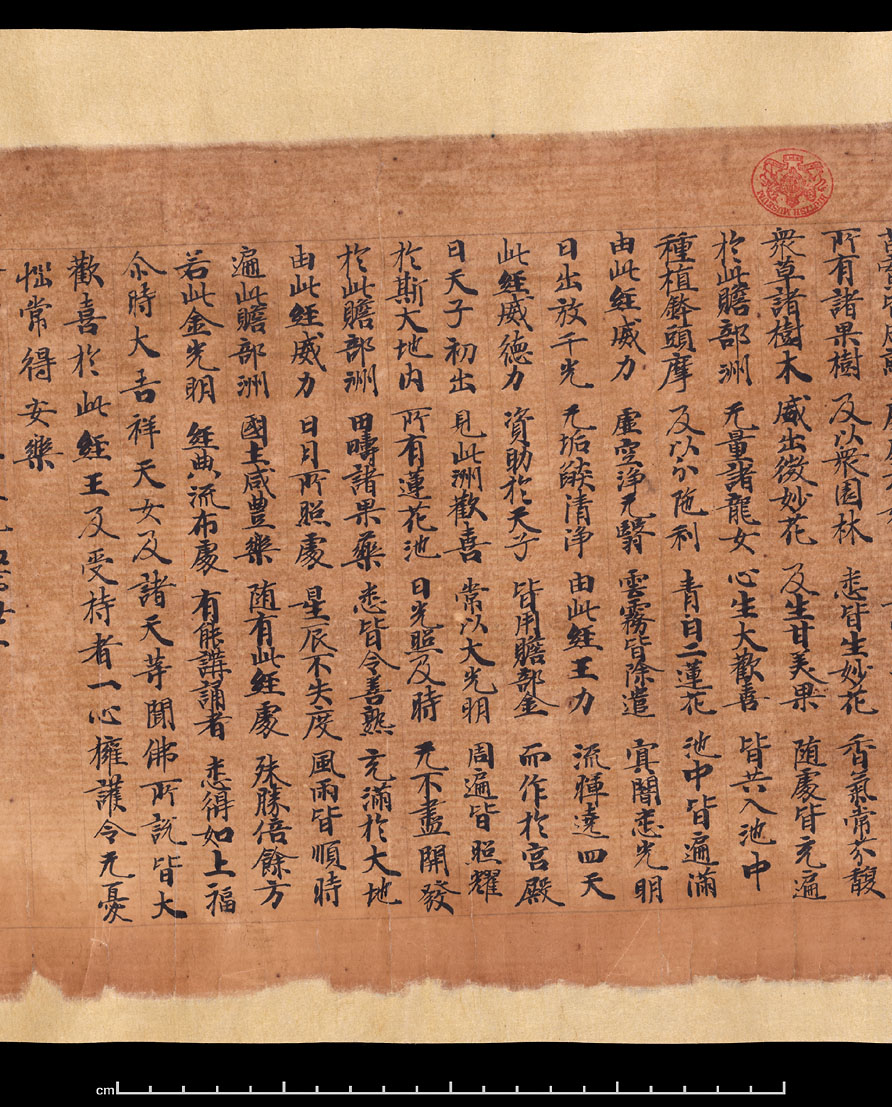 所有諸果樹 及以衆園林 悉皆生妙花 香氣常芬馥
衆草諸樹木 咸出微妙花 及生甘美果 随處皆充遍
於此贍部洲 无量諸龍女 心生大歡喜 皆共入池中
種植鉢頭摩 及以分陁利 青白二蓮花 池中皆遍滿
由此經威力 虛空淨无翳 雲霧皆除遣 冥闇悉光明
日出放千光 无垢燄清淨 由此經王力 流暉遶四天
此經威德力 資助於天子 皆用贍部金 而作於宮殿
日天子初出 見此洲歡喜 常以大光明 周遍皆照耀
於斯大地内 所有蓮花池 日光照及時 无不盡開發
於此贍部洲 田疇諸果藥 悉皆令善熟 充滿於大地
由此經威力 日月所照處 星辰不失度 風雨皆順時
遍此贍部洲 國土咸豊樂 随有此經處 殊勝倍餘方
若此金光明 經典流布處 有能講誦者 悉得如上福
尒時大吉祥天女及諸天等聞佛所說皆大
歡喜於此經王及受持者一心擁護令无憂
惱常得安樂
BRITISH MUSEUM
cm